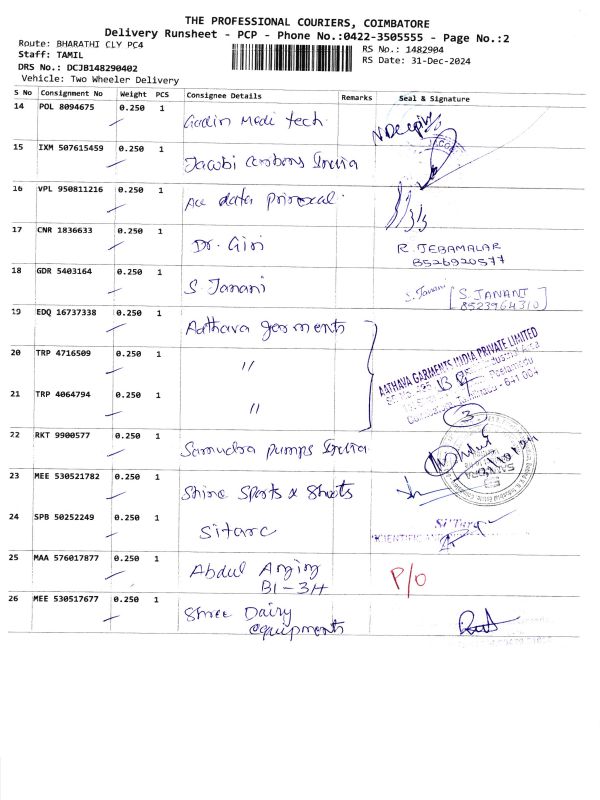 THE PROFESSIONAL COURIERS, COIMBATORE
Delivery Runsheet - PCP - Phone No.:0422-3505555 - Page No.:2
Route: BHARATHI CLY PC4
RS No.: 1482904
Staff: TAMIL
RS Date: 31-Dec-2024
DRS No.: DCJB148290402
Vehicle: Two Wheeler Delivery
S No Consignment No Weight PCS Consignee Details Remarks Seal & Signature
14 POL 8094675 0.250 1 Medi tech
15 IXM 507615459 0.250 1 Jacobi carbons India
16 VPL 950811216 0.250 1 Ace data
17 CNR 1836633 0.250 1 Dr. Giri R. JEBAMALAR
8526920577
18 GDR 5403164 0.250 1 S. Janani S. Janani [S. JANANI
8523964310]
19 EDQ 16737338 0.250 1 Aathava garments
20 TRP 4716509 0.250 1 "
AATHAVA GARMENTS INDIA PRIVATE LIMITED
21 TRP 4064794 0.250 1 "
3
22 RKT 9900577 0.250 1 Samudra pumps India
23 MEE 530521782 0.250 1 Shine Sports &
24 SPB 50252249 0.250 1 Sitarc Si'Tarc
25 MAA 576017877 0.250 1 Abdul P/O
B1-3H
26 MEE 530517677 0.250 1 Shree Dairy
equipments